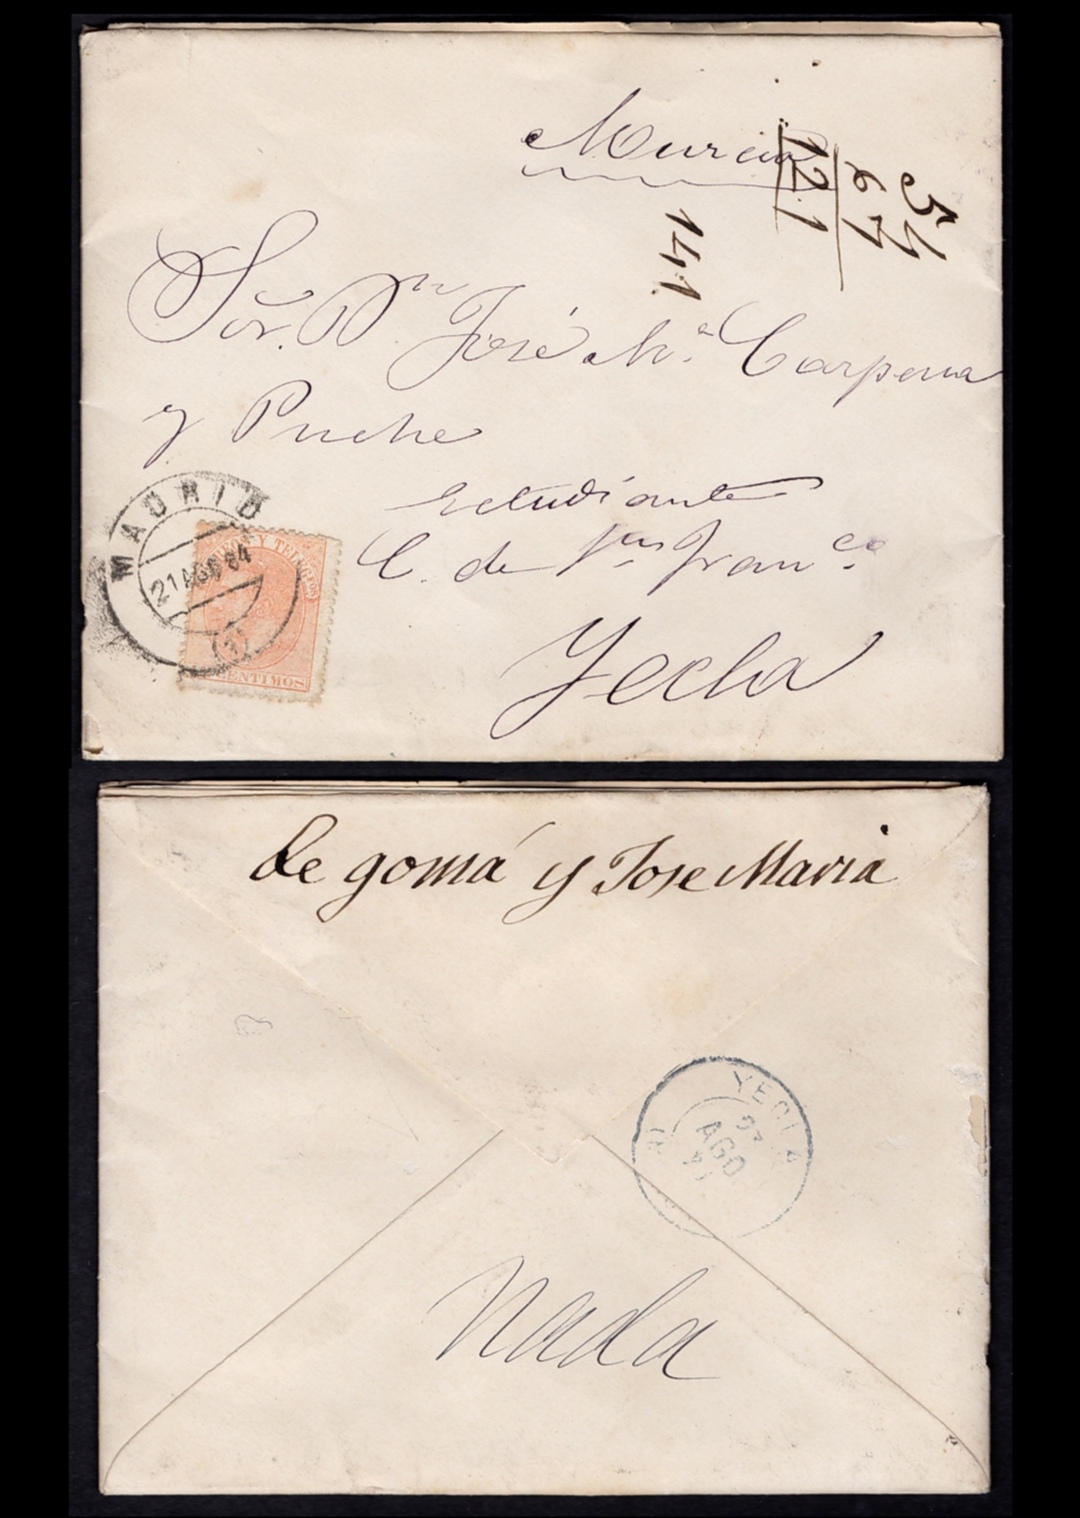 Murcia
54
67
121
141
Sor. Dn José Ma. Carpena
y Puche
estudiante
C. de Sn Franco.
Yecla
MADRID
21 AGO 84
(1)
CORREOS Y TELEGROS
CENTIMOS
de gomá y Jose Maria
YECLA
23
AGO
Nada